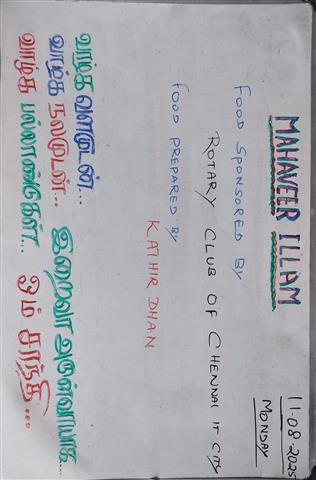 11-08-2025
MONDAY
MAHAVEER ILLAM
FOOD SPONSORED BY
ROTARY CLUB OF CHENNAI IT CITY
FOOD PREPARED BY
KATHIR DHAN
வாழ்க வளமுடன்...
வாழ்க நலமுடன்... இறைவா அருள்வாயாக...
வாழ்க பல்லாண்டுகள்... ஓம் சாந்தி...